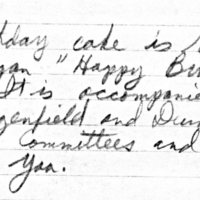 day cake is
"Happy
It is accompanie
enfield and Dun
Committees and
You.